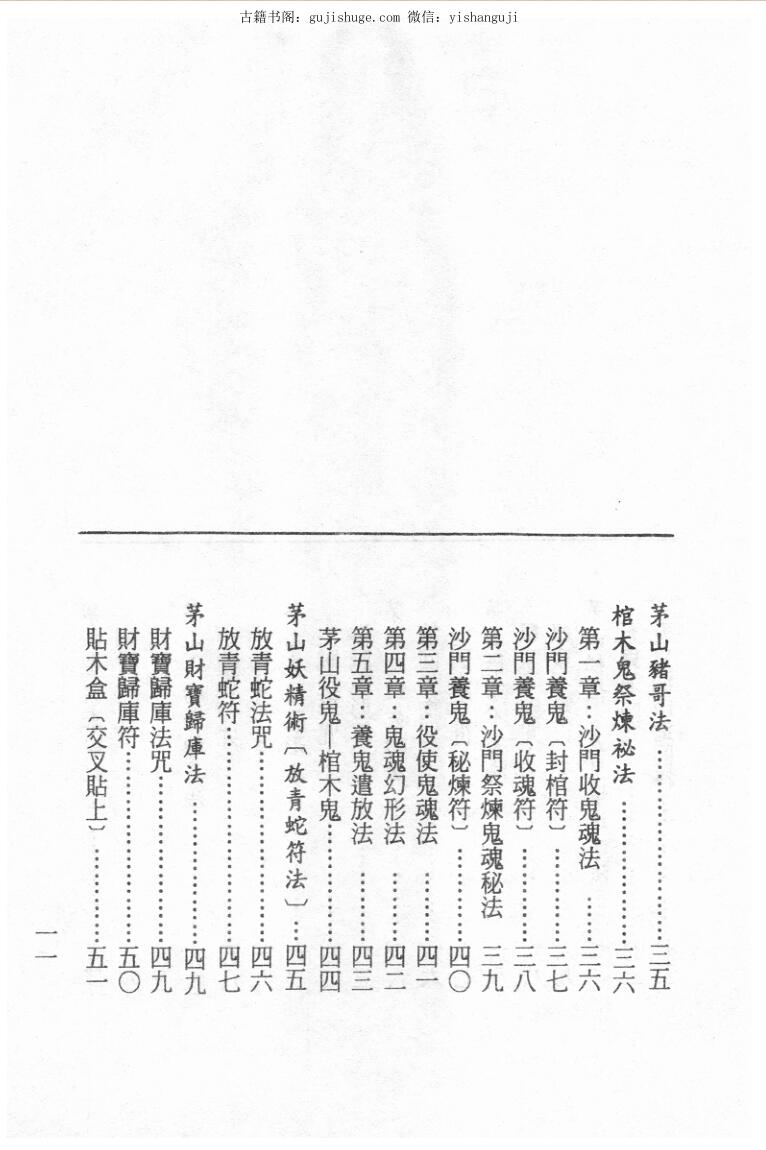 古籍书阁：gujishuge.com 微信：yishanguji
茅山豬哥法…………………三五
棺木鬼祭煉祕法……………三六
第一章：沙門收鬼魂法……三六
沙門養鬼〔封棺符〕………三七
沙門養鬼〔收魂符〕………三八
第二章：沙門祭煉鬼魂秘法 三九
沙門養鬼〔秘煉符〕………四〇
第三章：役使鬼魂法………四一
第四章：鬼魂幻形法………四二
第五章：養鬼遣放法………四三
茅山役鬼—棺木鬼…………四四
茅山妖精術〔放青蛇符法〕…四五
放青蛇法咒…………………四六
放青蛇符……………………四七
茅山財寶歸庫法……………四九
財寶歸庫法咒………………四九
財寶歸庫符…………………五〇
貼木盒〔交叉貼上〕………五一
一一